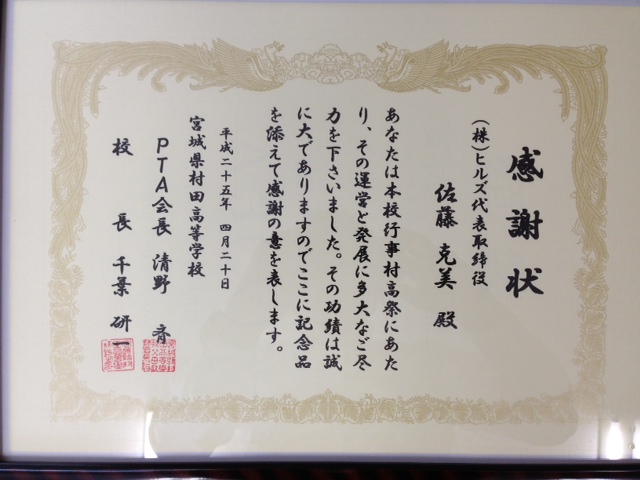 感謝状
(株)ヒルズ代表取締役
佐藤 克美 殿
あなたは本校行事村高祭にあた
り、その運営と発展に多大なご尽
力を下さいました。その功績は誠
に大でありますのでここに記念品
を添えて感謝の意を表します。
平成二十五年 四月二十日
宮城県村田高等学校
PTA会長 清野 斉
校長 千葉 研一